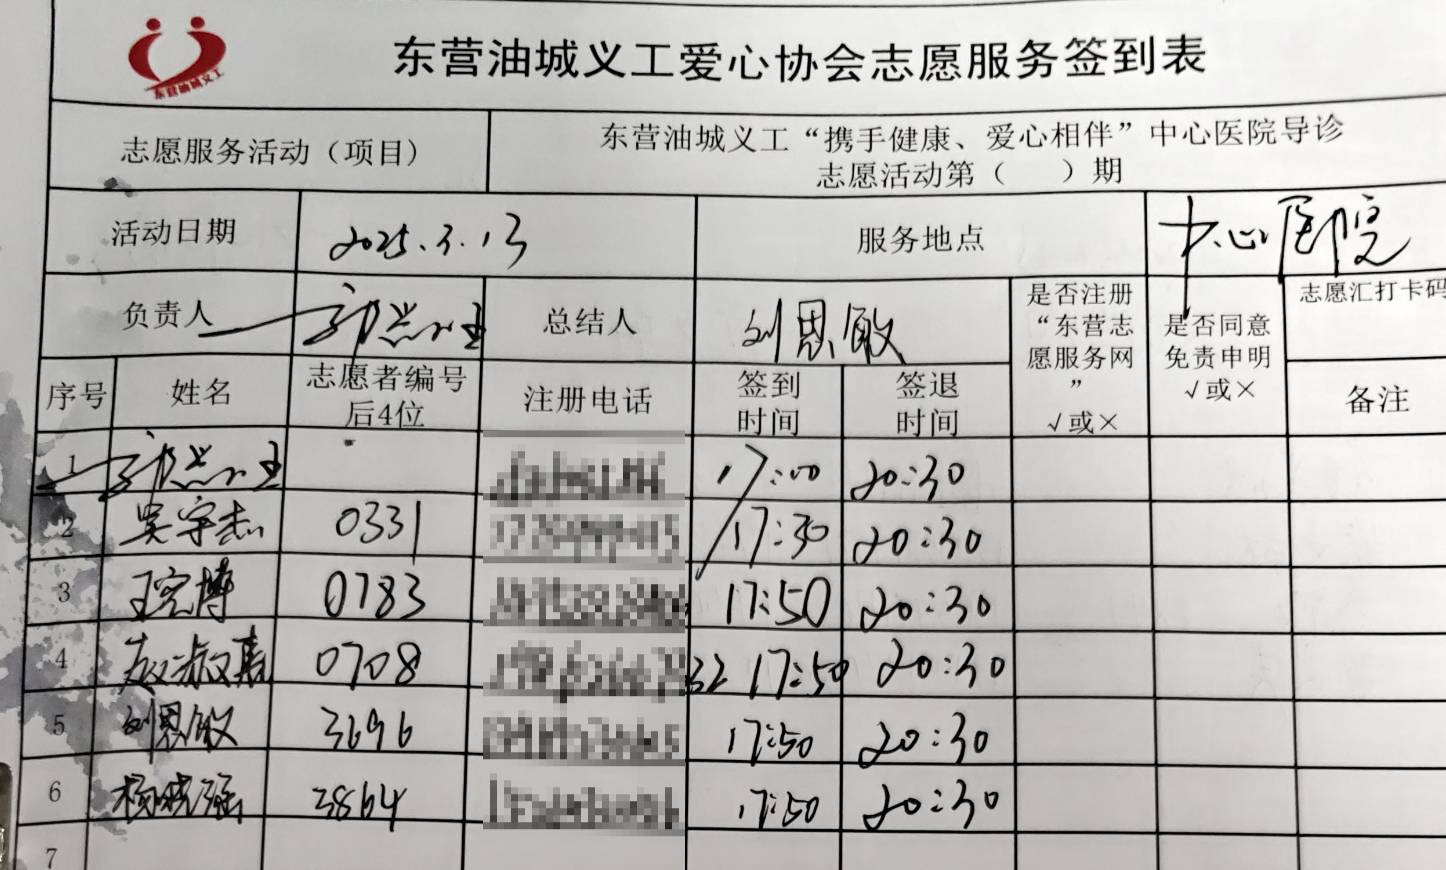 东营油城义工
东营油城义工爱心协会志愿服务签到表
志愿服务活动（项目）
东营油城义工“携手健康、爱心相伴”中心医院导诊
志愿活动第（ ）期
活动日期
2025.3.13
服务地点
中心医院
负责人
总结人
刘恩敏
是否注册
“东营志
愿服务网
”
√或×
是否同意
免责申明
√或×
志愿汇打卡码
序号
姓名
志愿者编号
后4位
注册电话
签到
时间
签退
时间
备注
1
17:00 20:30
2 吴宇杰 0331 17:30 20:30
3 0783 17:50 20:30
4 赵淑真 0708 32 17:50 20:30
5 刘恩敏 3696 17:50 20:30
6 杨晓瑶 3864 17:50 20:30
7